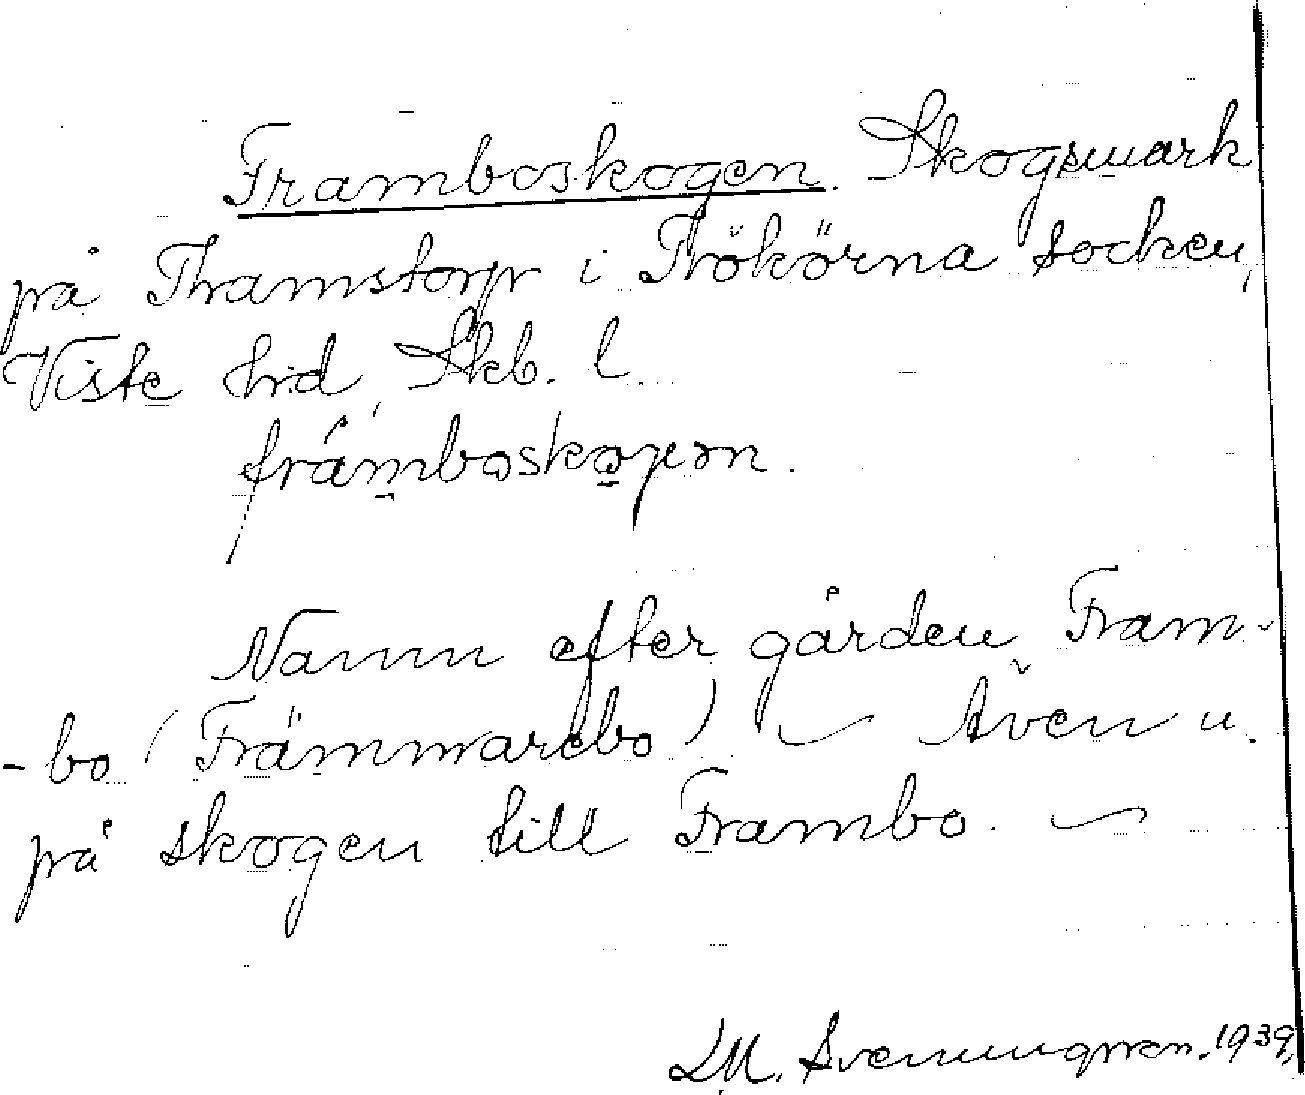 Framboskogen. Skogsmark
på Thamstorp i Trökörna socken,
Viste hrd, Skb. l.
Namn efter gården Fram-
-bo (Främmarebo) Även u.
på skogen till Frambo.
LM. Svenungsson. 1939.